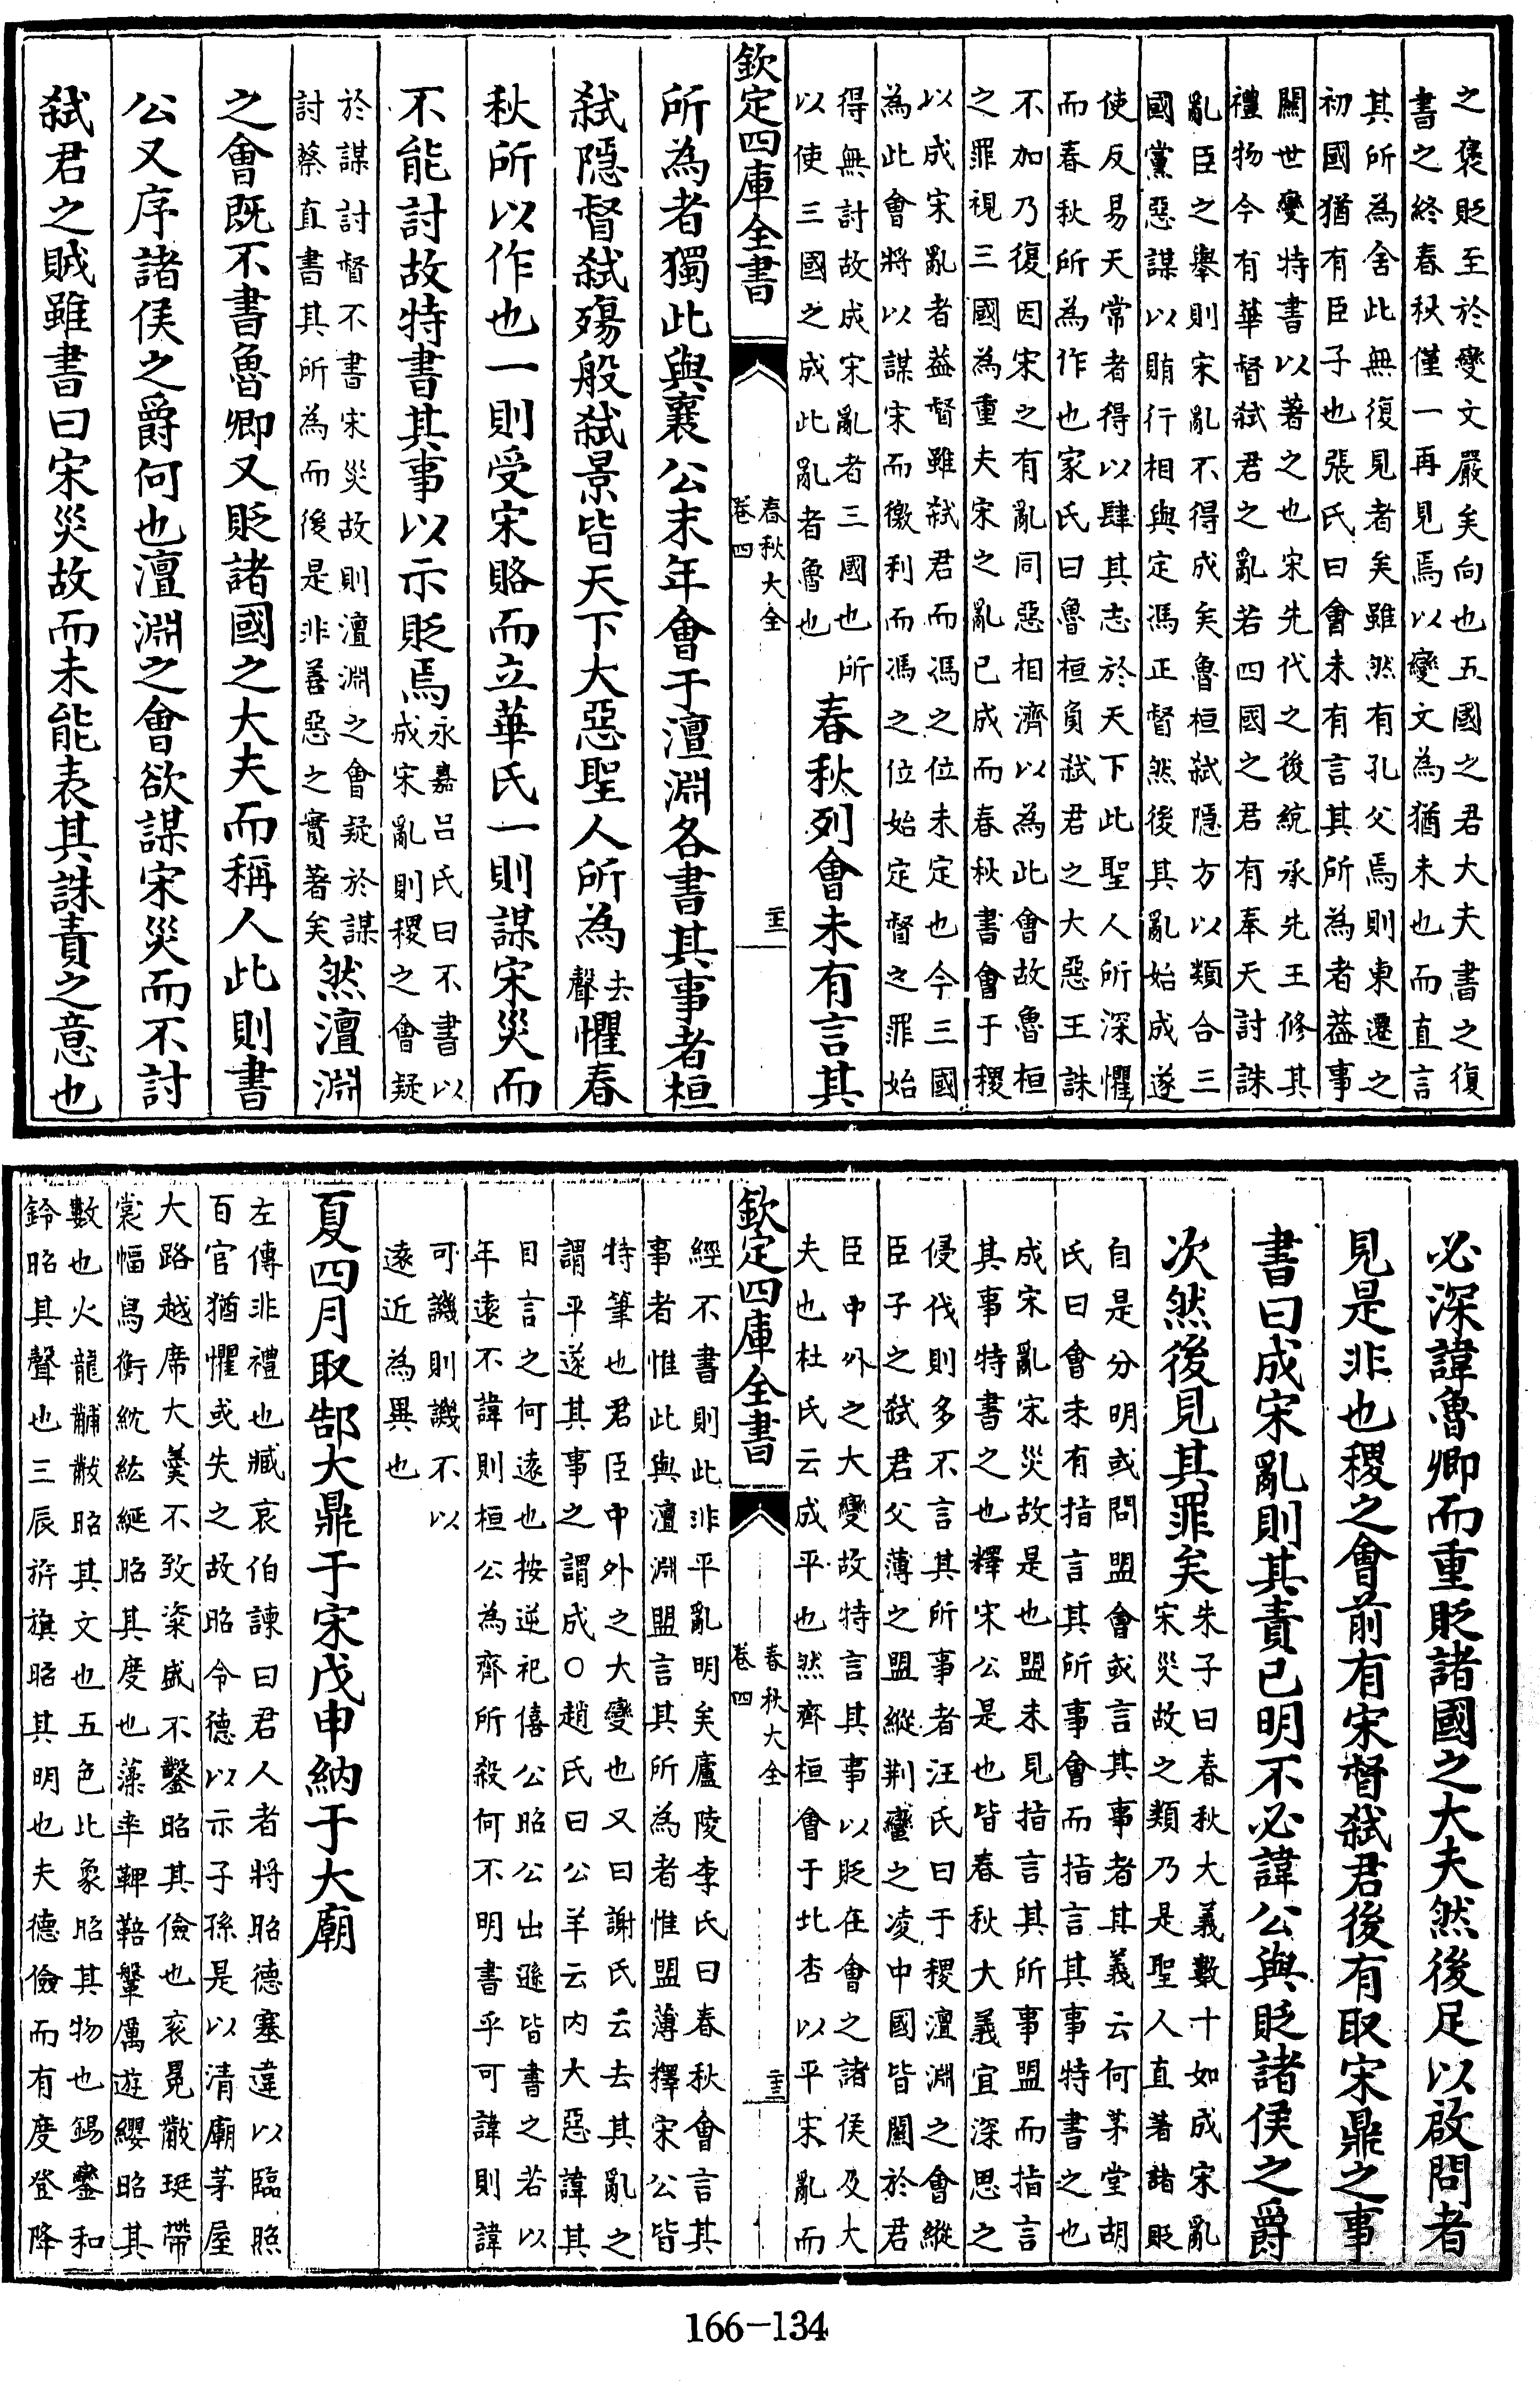 之褒貶至於變文嚴矣向也五國之君大夫書之復
書之終春秋僅一再見焉以變文為猶未也而直言
其所為舍此無復見者矣雖然有孔父焉則東遷之
初國猶有臣子也張氏曰會未有言其所為者葢事
關世變特書以著之也宋先代之後統承先王修其
禮物今有華督弑君之亂若四國之君有奉天討誅
亂臣之舉則宋亂不得成矣魯桓弑隱方以類合三
國黨惡謀以賄行相與定馮正督然後其亂始成遂
使反易天常者得以肆其志於天下此聖人所深懼
而春秋所為作也家氏曰魯桓負弑君之大惡王誅
不加乃復因宋之有亂同惡相濟以為此會故魯桓
之罪視三國為重夫宋之亂已成而春秋書會于稷
以成宋亂者葢督雖弑君而馮之位未定也今三國
為此會將以謀宋而徼利而馮之位始定督之罪始
得無討故成宋亂者三國也所
以使三國之成此亂者魯也
春秋列會未有言其
欽定四庫全書
春秋大全
卷四
二十三
所為者獨此與襄公末年會于澶淵各書其事者桓
弑隱督弑殤般弑景皆天下大惡聖人所為
去
聲
懼春
秋所以作也一則受宋賂而立華氏一則謀宋災而
不能討故特書其事以示貶焉
永嘉呂氏曰不書以
成宋亂則稷之會疑
於謀討督不書宋災故則澶淵之會疑於謀
討蔡直書其所為而後是非善惡之實著矣
然澶淵
之會既不書魯卿又貶諸國之大夫而稱人此則書
公又序諸侯之爵何也澶淵之會欲謀宋災而不討
弑君之賊雖書曰宋災故而未能表其誅責之意也
必深諱魯卿而重貶諸國之大夫然後足以啟問者
見是非也稷之會前有宋督弑君後有取宋鼎之事
書曰成宋亂則其責已明不必諱公與貶諸侯之爵
次然後見其罪矣
朱子曰春秋大義數十如成宋亂
宋災故之類乃是聖人直著諸貶
自是分明或問盟會或言其事者其義云何茅堂胡
氏曰會未有指言其所事會而指言其事特書之也
成宋亂宋災故是也盟未見指言其所事盟而指言
其事特書之也釋宋公是也皆春秋大義宜深思之
侵伐則多不言其所事者汪氏曰于稷澶淵之會縱
臣子之弑君父薄之盟縱荆蠻之凌中國皆關於君
臣中外之大變故特言其事以貶在會之諸侯及大
夫也杜氏云成平也然齊桓會于北杏以平宋亂而
欽定四庫全書
春秋大全
卷四
經不書則此非平亂明矣廬陵李氏曰春秋會言其
事者惟此與澶淵盟言其所為者惟盟薄釋宋公皆
特筆也君臣中外之大變也又曰謝氏云去其亂之
謂平遂其事之謂成○趙氏曰公羊云内大惡諱其
目言之何遠也按逆祀僖公昭公出遜皆書之若以
年遠不諱則桓公為齊所殺何不明書乎可諱則諱
可譏則譏不以
遠近為異也
夏四月取郜大鼎于宋戊申納于大廟
左傳非禮也臧哀伯諫曰君人者將昭德塞違以臨照
百官猶懼或失之故昭令德以示子孫是以清廟茅屋
大路越席大羹不致粢盛不鑿昭其儉也衮冕黻珽帶
裳幅舄衡紞紘綖昭其度也藻率鞞鞛鞶厲遊纓昭其
數也火龍黼黻昭其文也五色比象昭其物也鍚鸞和
鈴昭其聲也三辰旂旗昭其明也夫德儉而有度登降
166-134